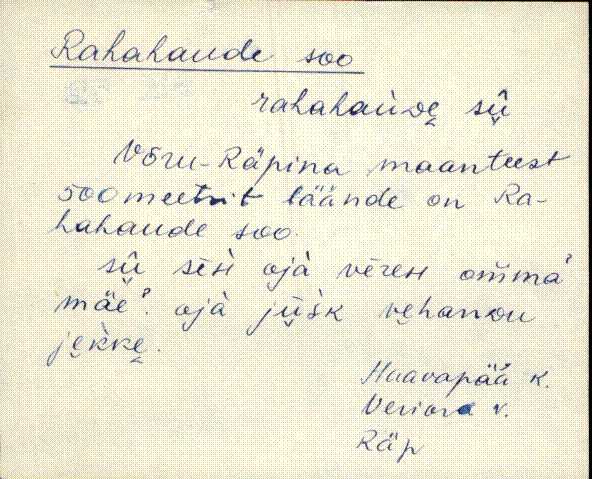 Rahahaude soo
rahahaùᴅe̬ sü̬
Võru-Räpina maanteest
500 meetrit läände on Ra-
hahaude soo.
sü̬ sēʜ ojà vēreʜ om̆mà'
mäe'. ojà jü̬šk ve̬hanᴅu
je̬kke̬.
Haavapää k.
Veriora v.
Räp